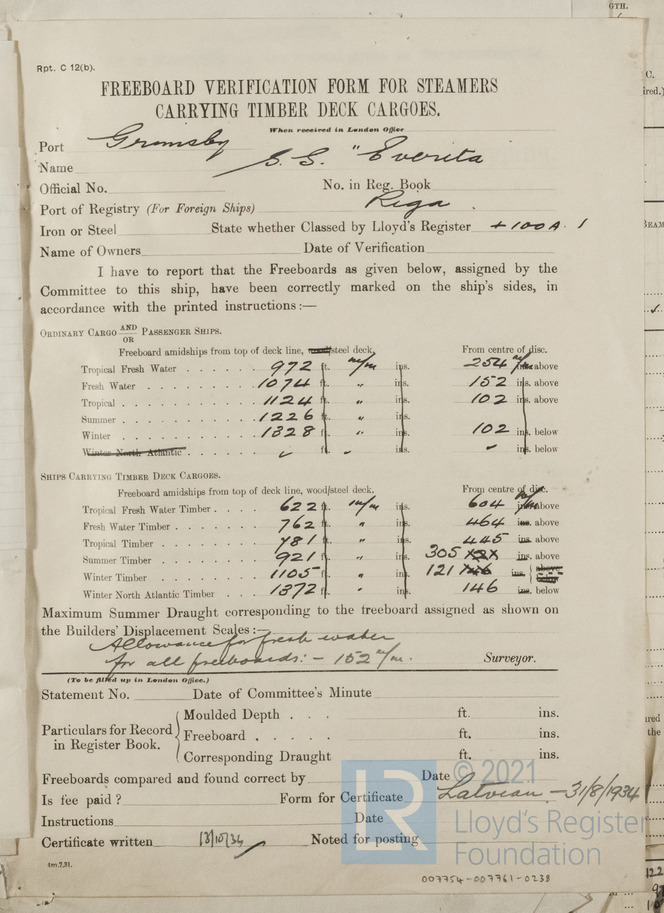 6TH.
Rpt. C 12(b).
FREEBOARD VERIFICATION FORM FOR STEAMERS
CARRYING TIMBER DECK CARGOES.
When received in London Office
Port Grimsby
Name S.S. "Everita
Official No. No. in Reg. Book
Port of Registry (For Foreign Ships) Riga.
Iron or Steel State whether Classed by Lloyd's Register +100A.1
Name of Owners Date of Verification
I have to report that the Freeboards as given below, assigned by the
Committee to this ship, have been correctly marked on the ship's sides, in
accordance with the printed instructions:—
ORDINARY CARGO AND/OR PASSENGER SHIPS.
Freeboard amidships from top of deck line, wood/steel deck. From centre of disc.
Tropical Fresh Water 972 ft. m/m ins. 254 m/m ins. above
Fresh Water 1074 ft. " ins. 152 ins. above
Tropical 1124 ft. " ins. 102 ins. above
Summer 1226 ft. " ins.
Winter 1328 ft. " ins. 102 ins. below
Winter North Atlantic ft. ins. ins. below
SHIPS CARRYING TIMBER DECK CARGOES.
Freeboard amidships from top of deck line, wood/steel deck. From centre of disc.
Tropical Fresh Water Timber 622 ft. m/m ins. 604 m/m ins. above
Fresh Water Timber 762 ft. " ins. 464 ins. above
Tropical Timber 781 ft. " ins. 445 ins. above
Summer Timber 921 ft. " ins. 305 ins. above
Winter Timber 1105 ft. " ins. 121 ins. above
Winter North Atlantic Timber 1372 ft. " ins. 146 ins. below
Maximum Summer Draught corresponding to the freeboard assigned as shown on
the Builders' Displacement Scales:—
Allowance for fresh water
for all freeboards:- 152 m/m. Surveyor.
(To be filled up in London Office.)
Statement No. Date of Committee's Minute
Particulars for Record in Register Book.
Moulded Depth . . . ft. ins.
Freeboard . . . . . ft. ins.
Corresponding Draught ft. ins.
Freeboards compared and found correct by Date
Is fee paid ? Form for Certificate Latvian - 31/8/1934
Instructions Date
Certificate written 13/10/34 Noted for posting
4m.7.31.
© 2021
LR
Lloyd's Register
Foundation
007754-007761-0238